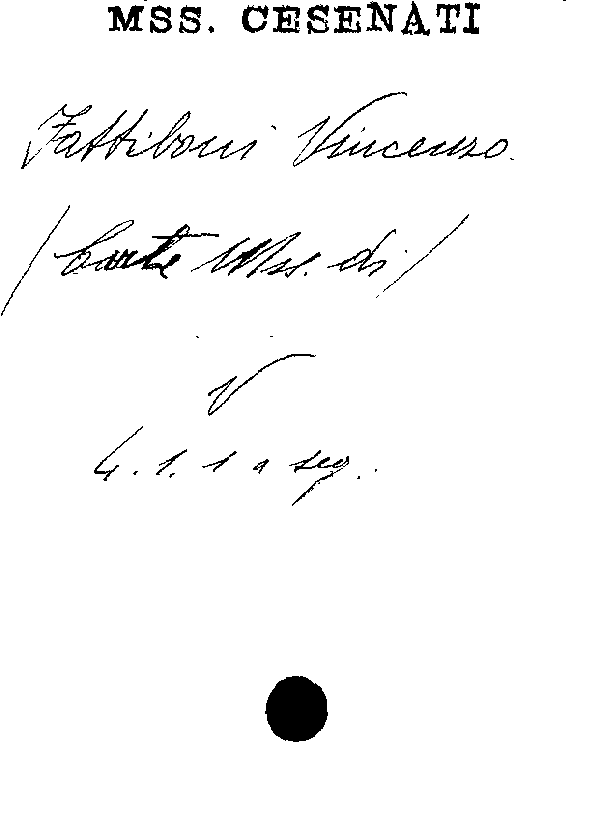 MSS. CESENATI
Fattiboni Vincenzo.
/Carte Mss. di/
V
4. 1. 1 a seg.